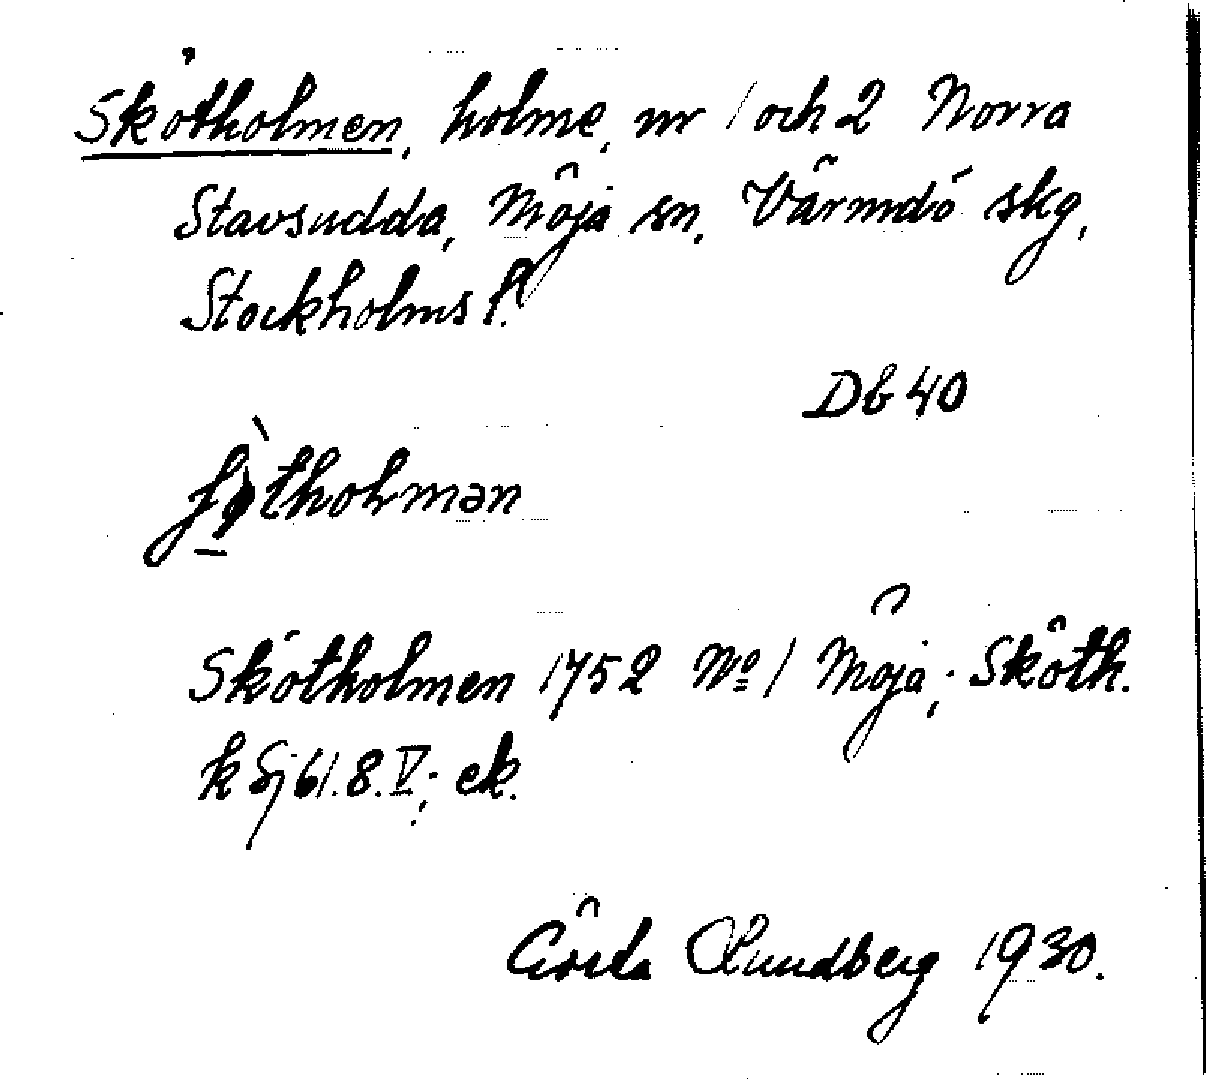 Skötholmen, holme, nr 1 och 2 Norra
Stavsudda, Möja sn, Värmdö skg,
Stockholms l.
Db 40
Skötholmen 1752 No 1 Möja; Sköth.
k Sj 61.8.V; ek.
Gösta Lundberg 1930.